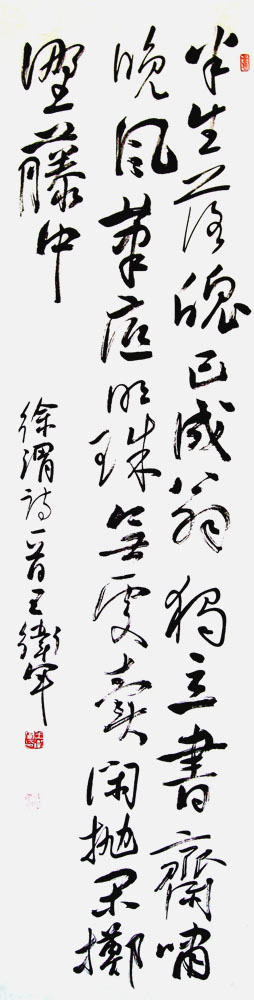 半生落魄已成翁獨立書齋嘯
晚風筆底明珠無處賣閑抛閑擲
野藤中
徐渭詩一首王衛軍